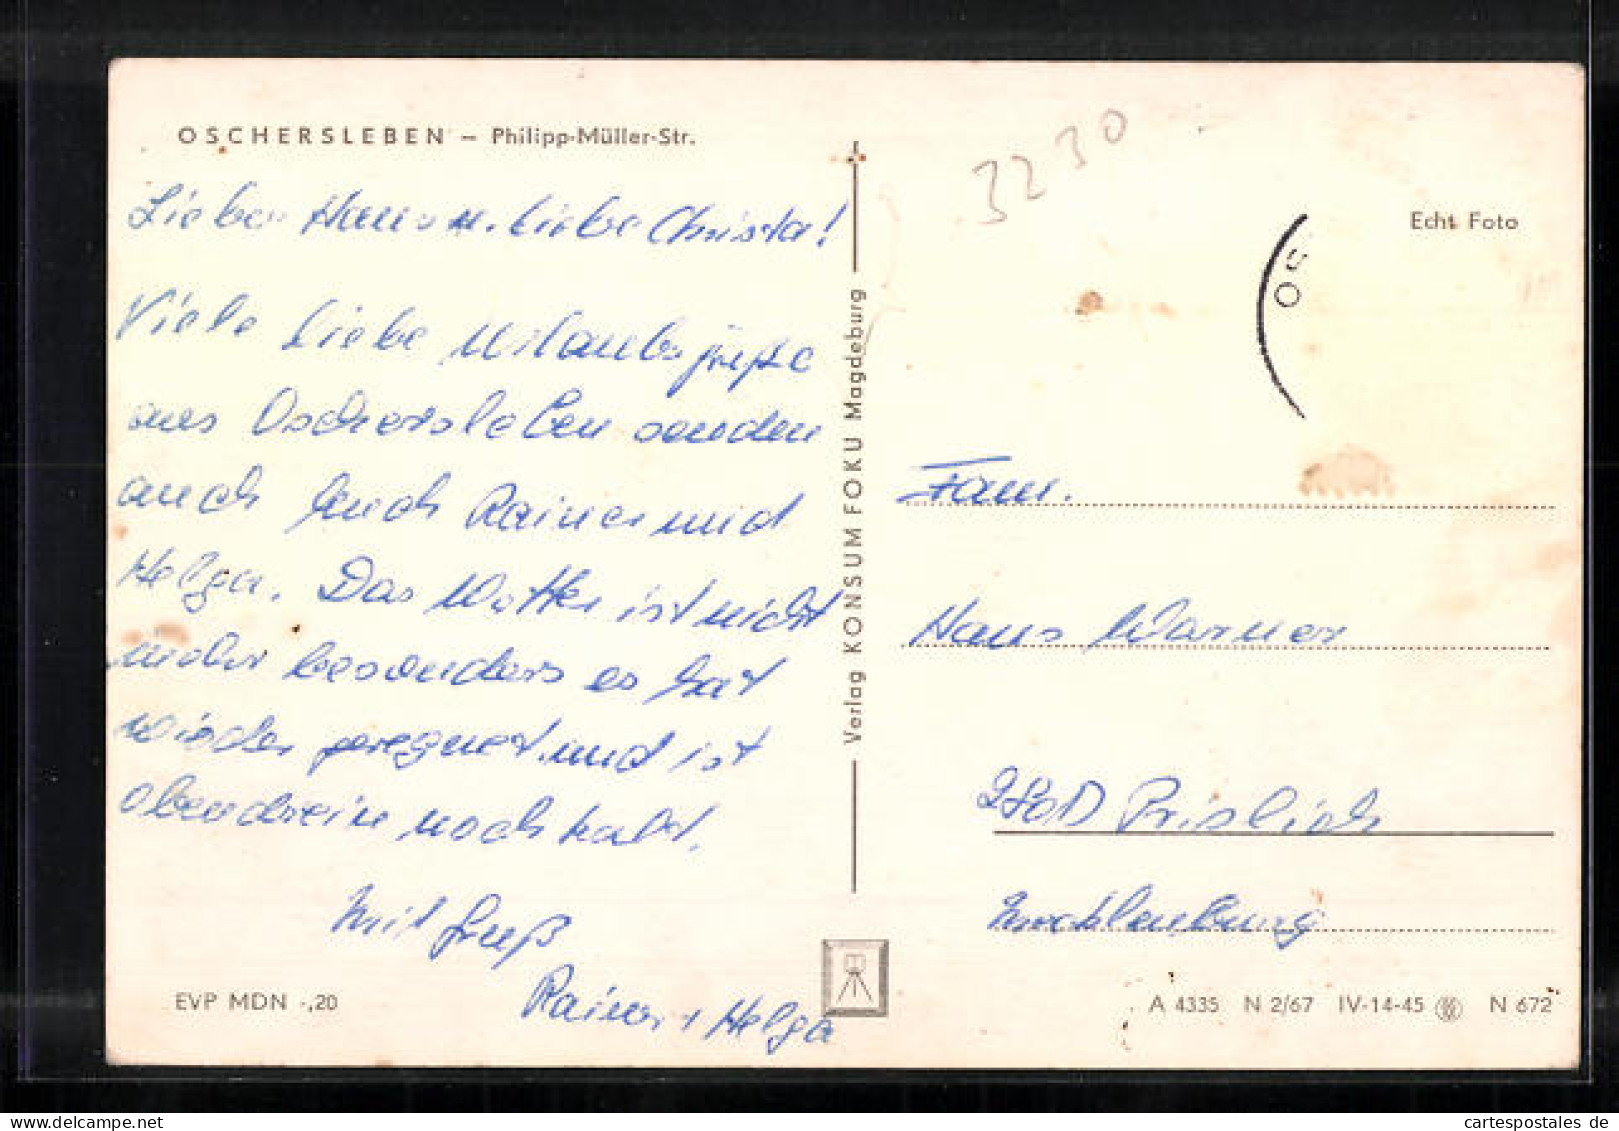 OSCHERSLEBEN – Philipp-Müller-Str.
Lieber Hans u. liebe Christa!
Viele liebe Urlaubsgrüße
aus Oschersleben senden
auch Euch Rainer und
Helga. Das Wetter ist nicht
mehr besonders es hat
wieder geregnet und ist
obendrein noch kalt.
Mit Gruß
Rainer + Helga
EVP MDN -,20
Verlag KONSUM FOKU Magdeburg
3230
Echt Foto
OS
Fam.
Hans Warner
2801 Prislich
Mecklenburg
A 4335 N 2/67 IV-14-45 N 672
cartespostales de